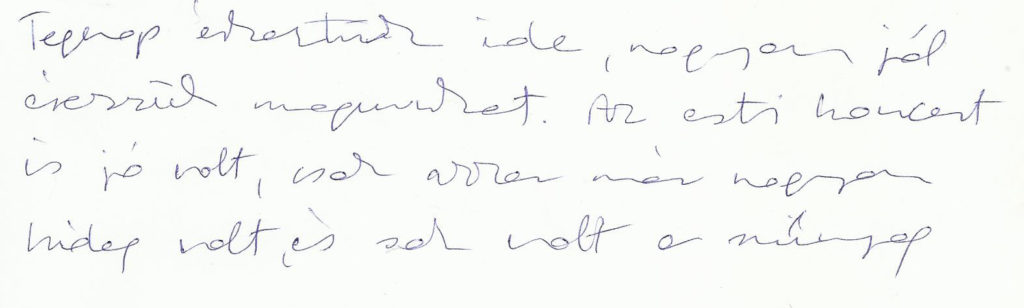 Tegnap érkeztünk ide, nagyon jól
érezzük magunkat. Az esti koncert
is jó volt, csak arra már nagyon
hideg volt, és sok volt a szúnyog